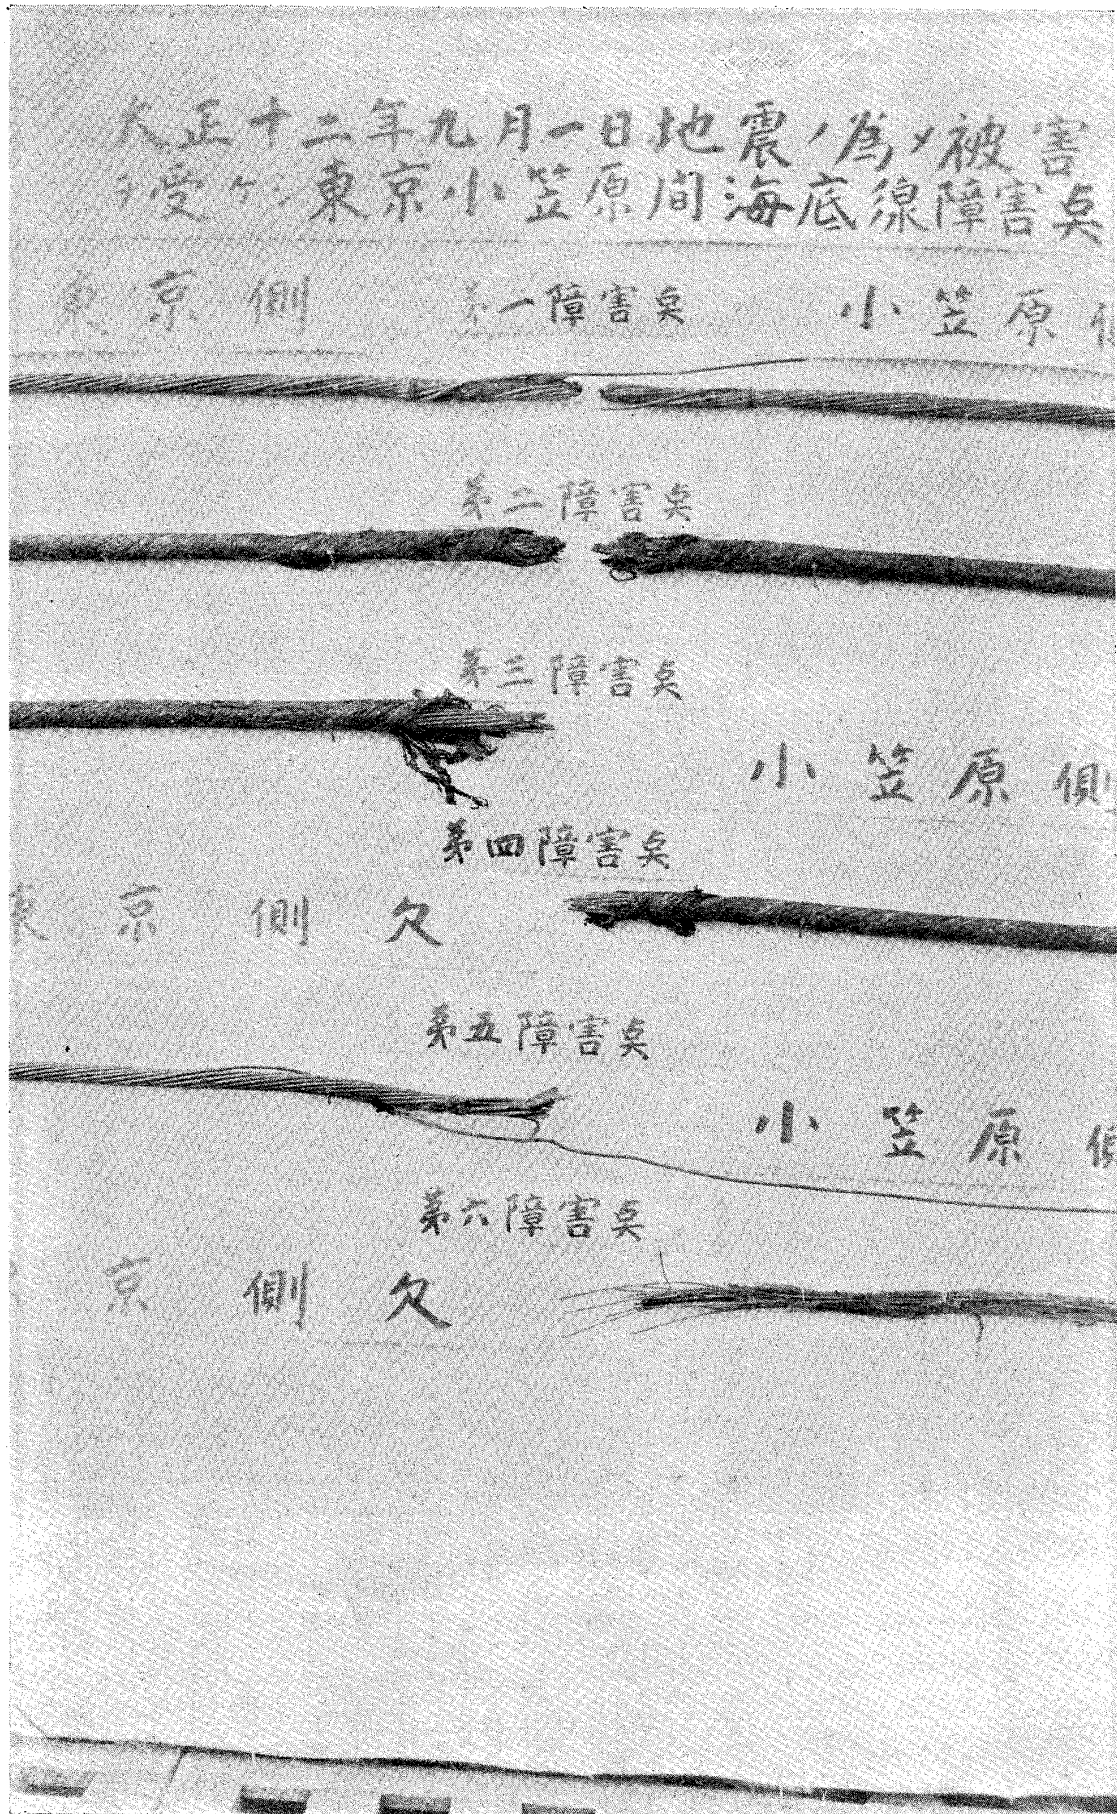 大正十二年九月一日地震ノ為メ被害
ヲ受ケシ東京小笠原間海底線障害㸃
東京側 第一障害㸃 小笠原側
第二障害㸃
第三障害㸃
小笠原側
第四障害㸃
東京側欠
第五障害㸃
小笠原側
第六障害㸃
京側欠